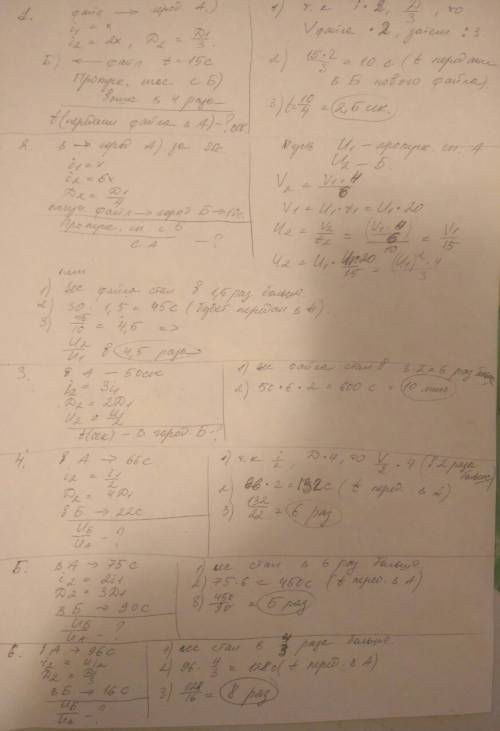 1. файл → город А.)
i1 = x
i2 = 2x, D2 = D1/3.
Б) ← файл t = 15с
Пропуск. с Б)
выше в 4 раза
t(передачи файла в А) - ? сек.
1) т. к. i · 2, D/3, то
V файла · 2, затем : 3
2) 15·2/3 = 10 с (t передачи
в Б нового файла)
3) t = 10/4 = 2,5 сек.
2. в → город А) за
i1 = x
i2 = 6x
D2 = D1/4
файл → город Б →
Пропуск. сп. с Б
с А - ?
Пусть U1 - пропуск. сп. А
U2 - Б.
V2 = V1 · 4/6
V1 = U1 · t1 = U1 · 20
U2 = V2/t2 = = V1/15
U2 = U1 · = · 4/3
или
1) вес файла стал в 1,5 раз больше.
2) 30 · 1,5 = 45с (будет передан в А).
3) 45/10 = 4,5 =>
U2/U1 в 4,5 раза
3. в А - 50сек
i2 = 3i1
D2 = 2D1
U2 = U1/2
t(сек) - в город Б?
1) вес файла стал в 3·2=6 раз больше
2) 50·6·2 = 600 с = 10 мин
4. в А → 66с
i2 = i1/2
D2 = 4D1
в Б → 22с
UБ/UА - ?
1) т.к. i/2, D·4, то V/2 · 4 (в 2 раза больше)
2) 66·2 = 132с (t перед. в А)
3) 132/22 = 6 раз
5. в А → 75с
i2 = 2i1
D2 = 3D1
в Б → 90с
UБ/UА - ?
1) вес стал в 6 раз больше.
2) 75·6 = 450с (t перед. в А)
3) 450/90 = 5 раз
6. в А → 96с
D2 = D1/3
в Б → 16с
UБ/UА - ?
1) вес стал в 4/3 раза больше.
2) 96 · 4/3 = 128с (t перед. в А)
3) 128/16 = 8 раз